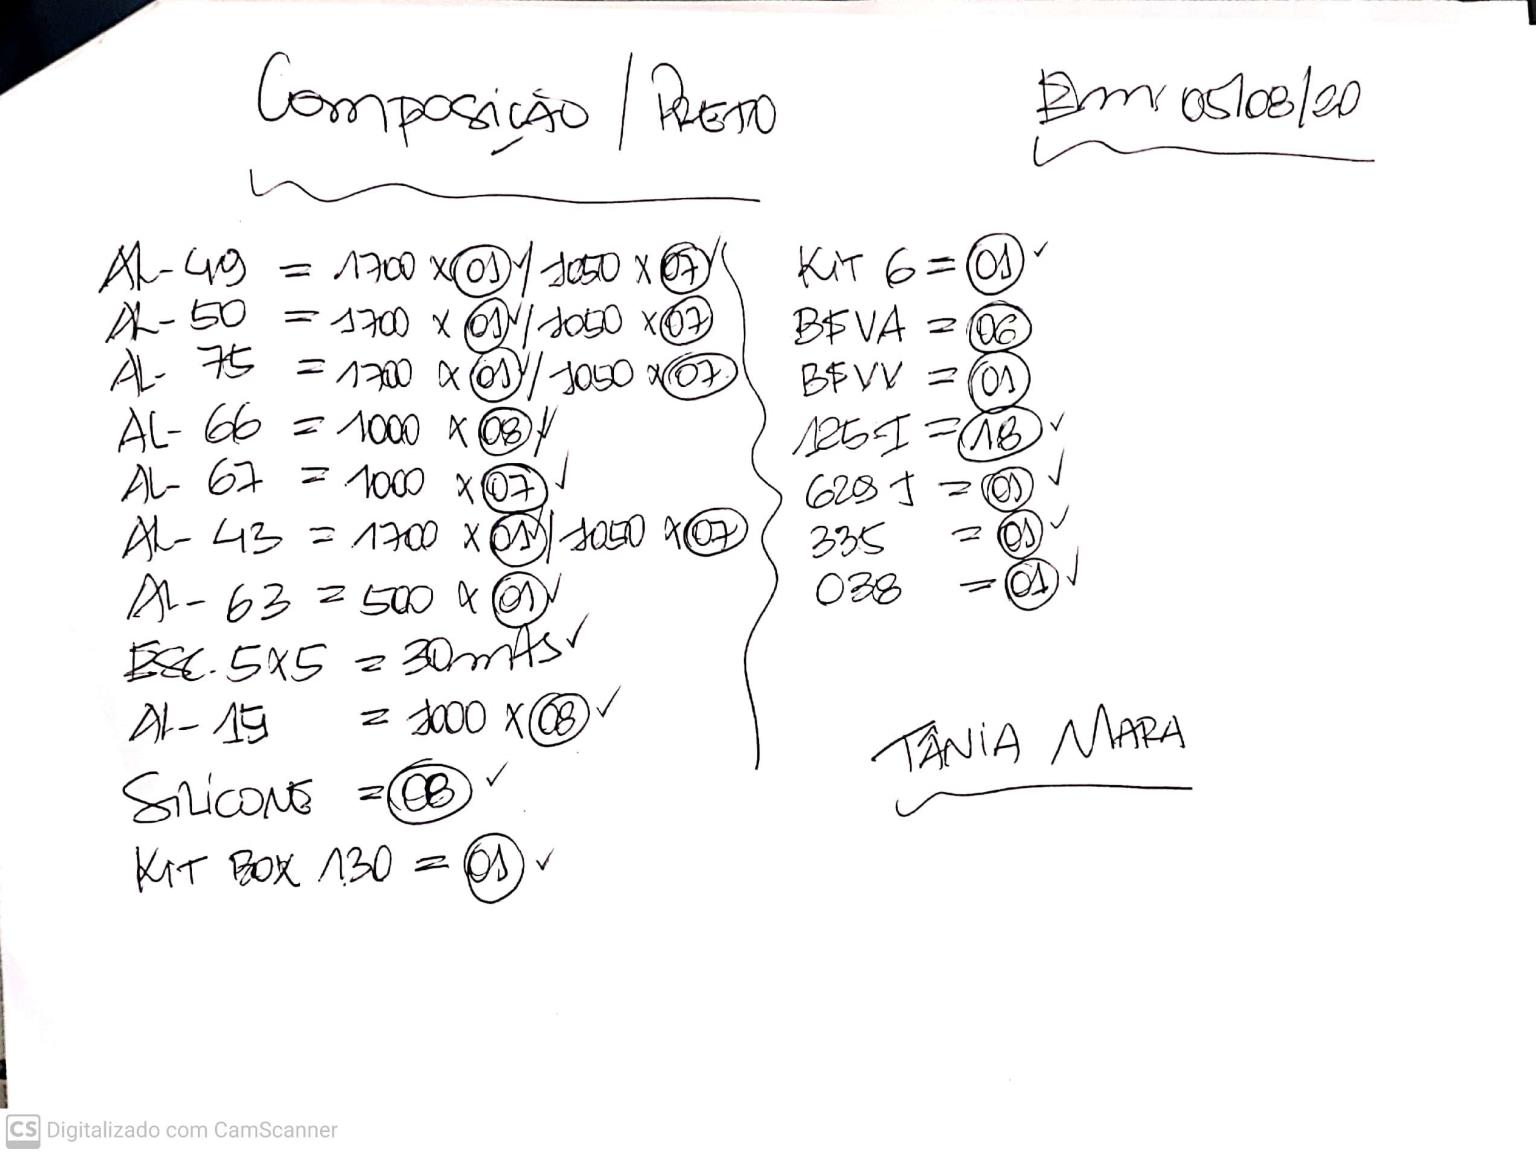 Composição / PRETO
Em: 05/08/20
AL-49 = 1700 x 01 ✓ / 1050 x 07 ✓
AL-50 = 1700 x 01 ✓ / 1050 x 07
AL-75 = 1700 x 01 ✓ / 1050 x 07
AL-66 = 1000 x 08 ✓
AL-67 = 1000 x 07 ✓
AL-43 = 1700 x 01 ✓ / 1050 x 07
AL-63 = 500 x 01 ✓
ESC. 5x5 = 30 mts ✓
AL-19 = 1000 x 08 ✓
SILICONE = 08 ✓
KIT BOX 130 = 01 ✓
KIT 6 = 01 ✓
= 06
= 01
125 I = 18 ✓
= 01 ✓
335 = 01 ✓
038 = 01 ✓
TÂNIA MARA
CS Digitalizado com CamScanner